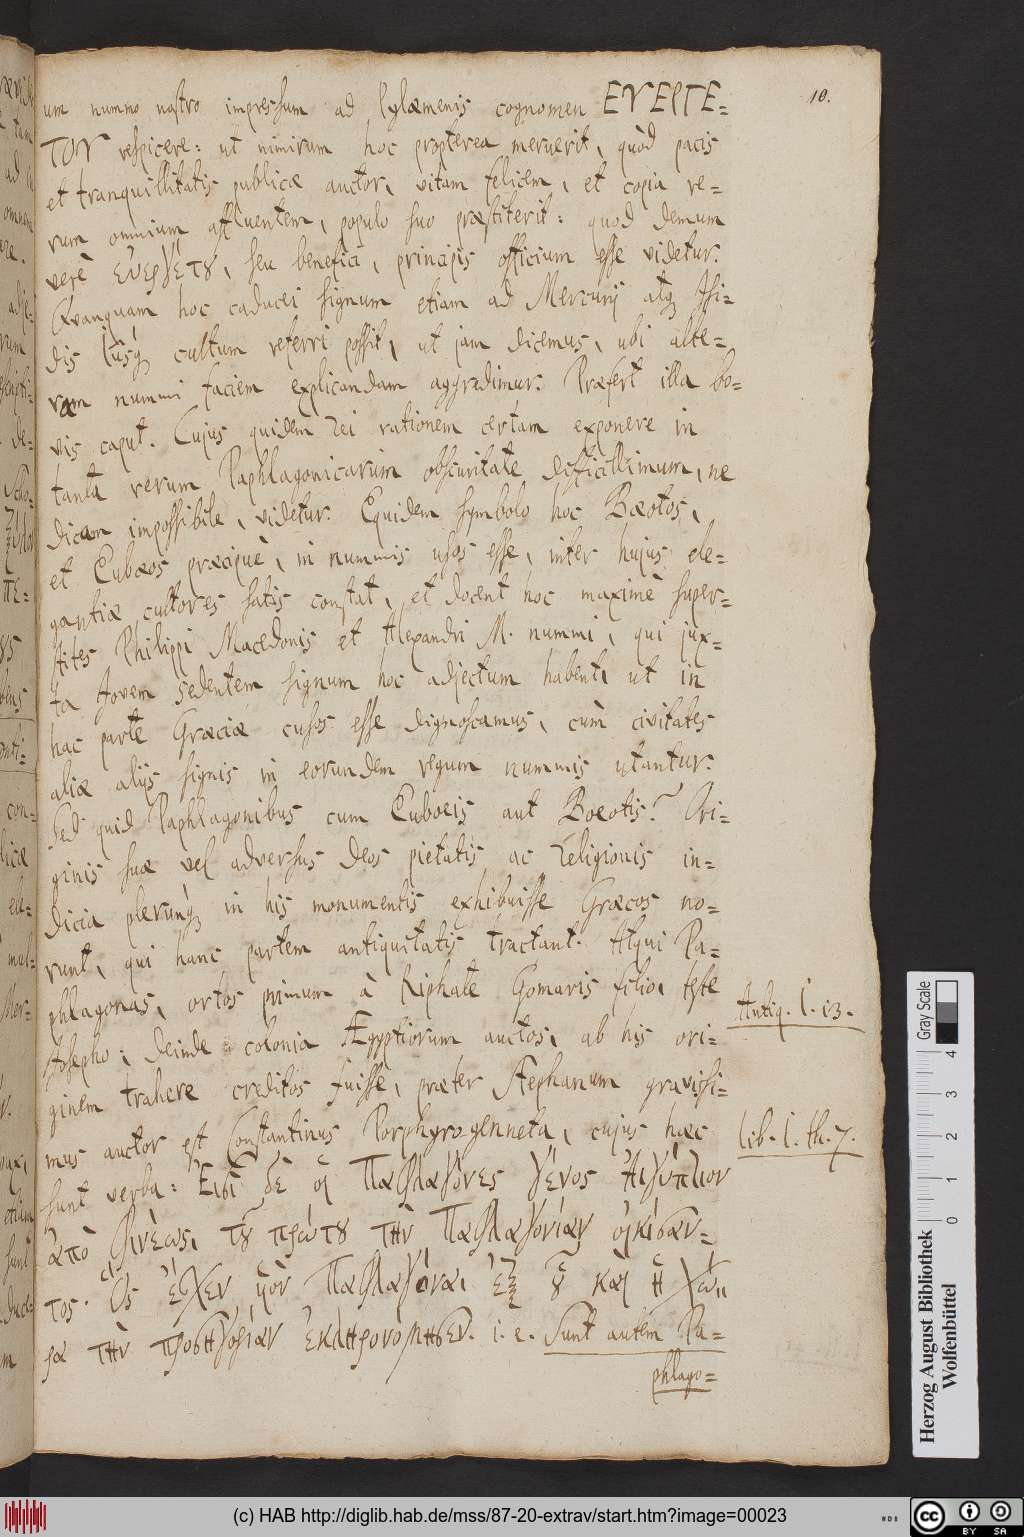 10.
um nummo nostro impressum ad Pylæmenis cognomen ΕΥΕΡΓΕ=
ΤΟΥ respicere: ut nimirum hoc propterea meruerit, quòd pacis
et tranquillitatis publicæ auctor, vitam felicem, et copia re=
rum omnium affluentem, populo suo præstiterit: quod demum
verè ἐυεργέτȣ, seu benefici, principis officium esse videtur.
Quanquam hoc caducei signum etiam ad Mercurij atq; Isi=
dis cultum referri possit, ut jam dicemus, ubi alte=
ram nummi faciem explicandam aggredimur. Præfert illa bo=
vis caput. Cujus quidem rei rationem certam exponere in
tanta rerum Paphlagonicarum obscuritate difficillimum, ne
dicam impossibile, videtur. Equidem symbolo hoc Bæotos,
et Eubæos præcipuè, in nummis usos esse, inter hujus ele=
gantiæ cultores satis constat, et docent hoc maximè super=
stites Philippi Macedonis et Alexandri M. nummi, qui jux=
ta Jovem sedentem signum hoc adjectum habent, ut in
hac parte Græciæ cusos esse dignoscamus, cùm civitates
aliæ alijs signis in eorundem regum nummis utantur.
Sed quid Paphlagonibus cum Euboeis aut Boeotis? Ori=
ginis suæ vel adversus Deos pietatis ac religionis in=
dicia plerunq; in his monumentis exhibuisse Græcos no=
runt, qui hanc partem antiquitatis tractant. Atqui Pa=
phlagonas, ortos primum à Riphate Gomaris filio, teste
Josepho; deinde colonia Ægyptiorum auctos, ab his ori=
ginem trahere creditos fuisse, præter Stephanum gravissi=
mus auctor est Constantinus Porphyrogenneta, cujus hæc
sunt verba: Εἰσὶ δὲ οἱ Παφλαγόνες γένος Αἰγύπτιον
ἀπὸ Φινέως, τȣ πρώτȣ τὴν Παφλαγονίαν οἰκίσαν=
τος. Ὃς ἔσχεν υἱὸν Παφλαγόνα, ἐξ ȣ̔ καὶ ἡ χώ=
ρα τὴν προσηγορίαν ἐκληρονόμησεν. i. e. Sunt autem Pa=
phlago=
Antiq. l. 13.
lib. 1. th. 7.
Gray Scale
0 1 2 3 4
Herzog August Bibliothek
Wolfenbüttel
(c) HAB http://diglib.hab.de/mss/87-20-extrav/start.htm?image=00023
cc BY SA